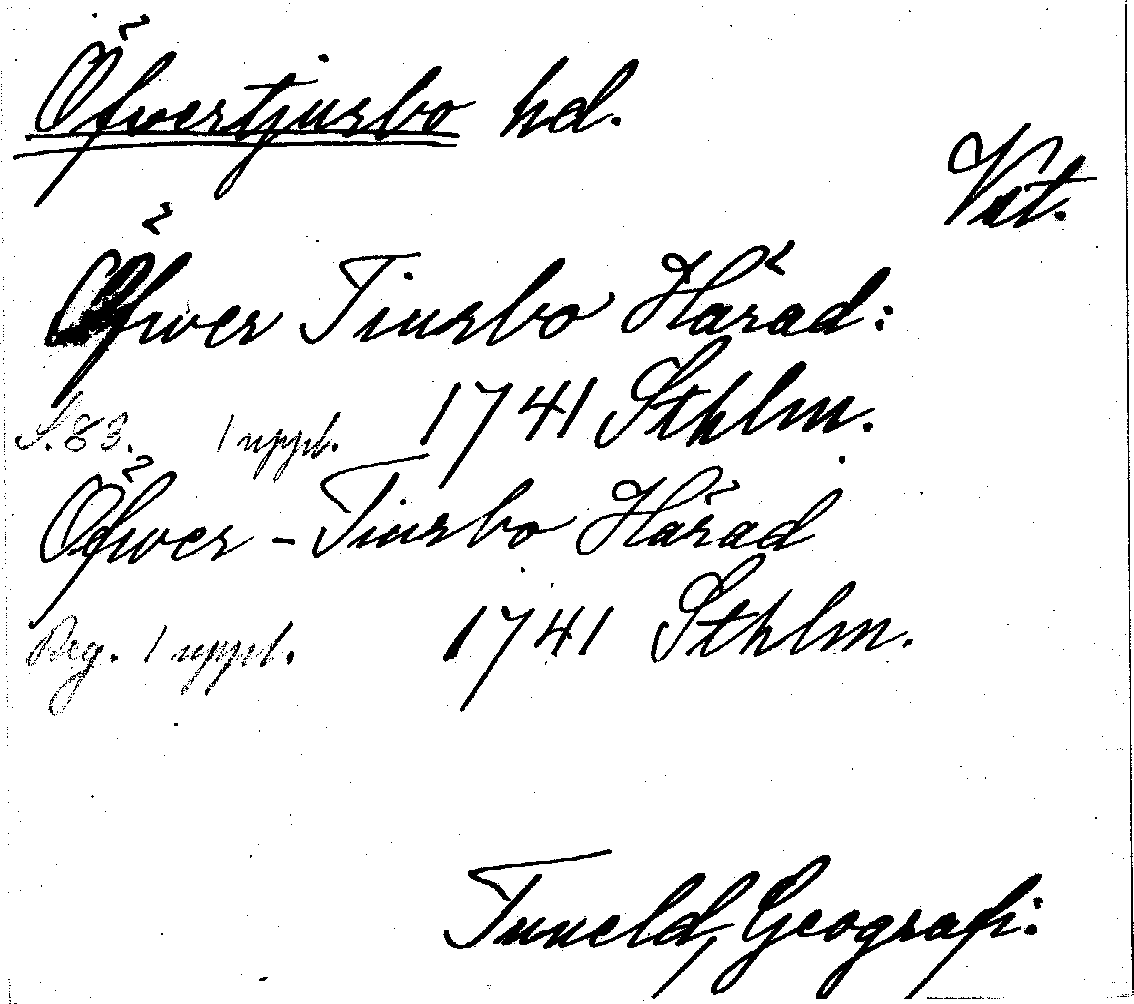 Öfvertjurbo hd.
Vst.
Öfwer Tiurbo Härad:
S. 83. 1 uppl. 1741 Sthlm.
Öfwer - Tiurbo Härad
Reg. 1 uppl. 1741 Sthlm.
Tuneld, Geografi: